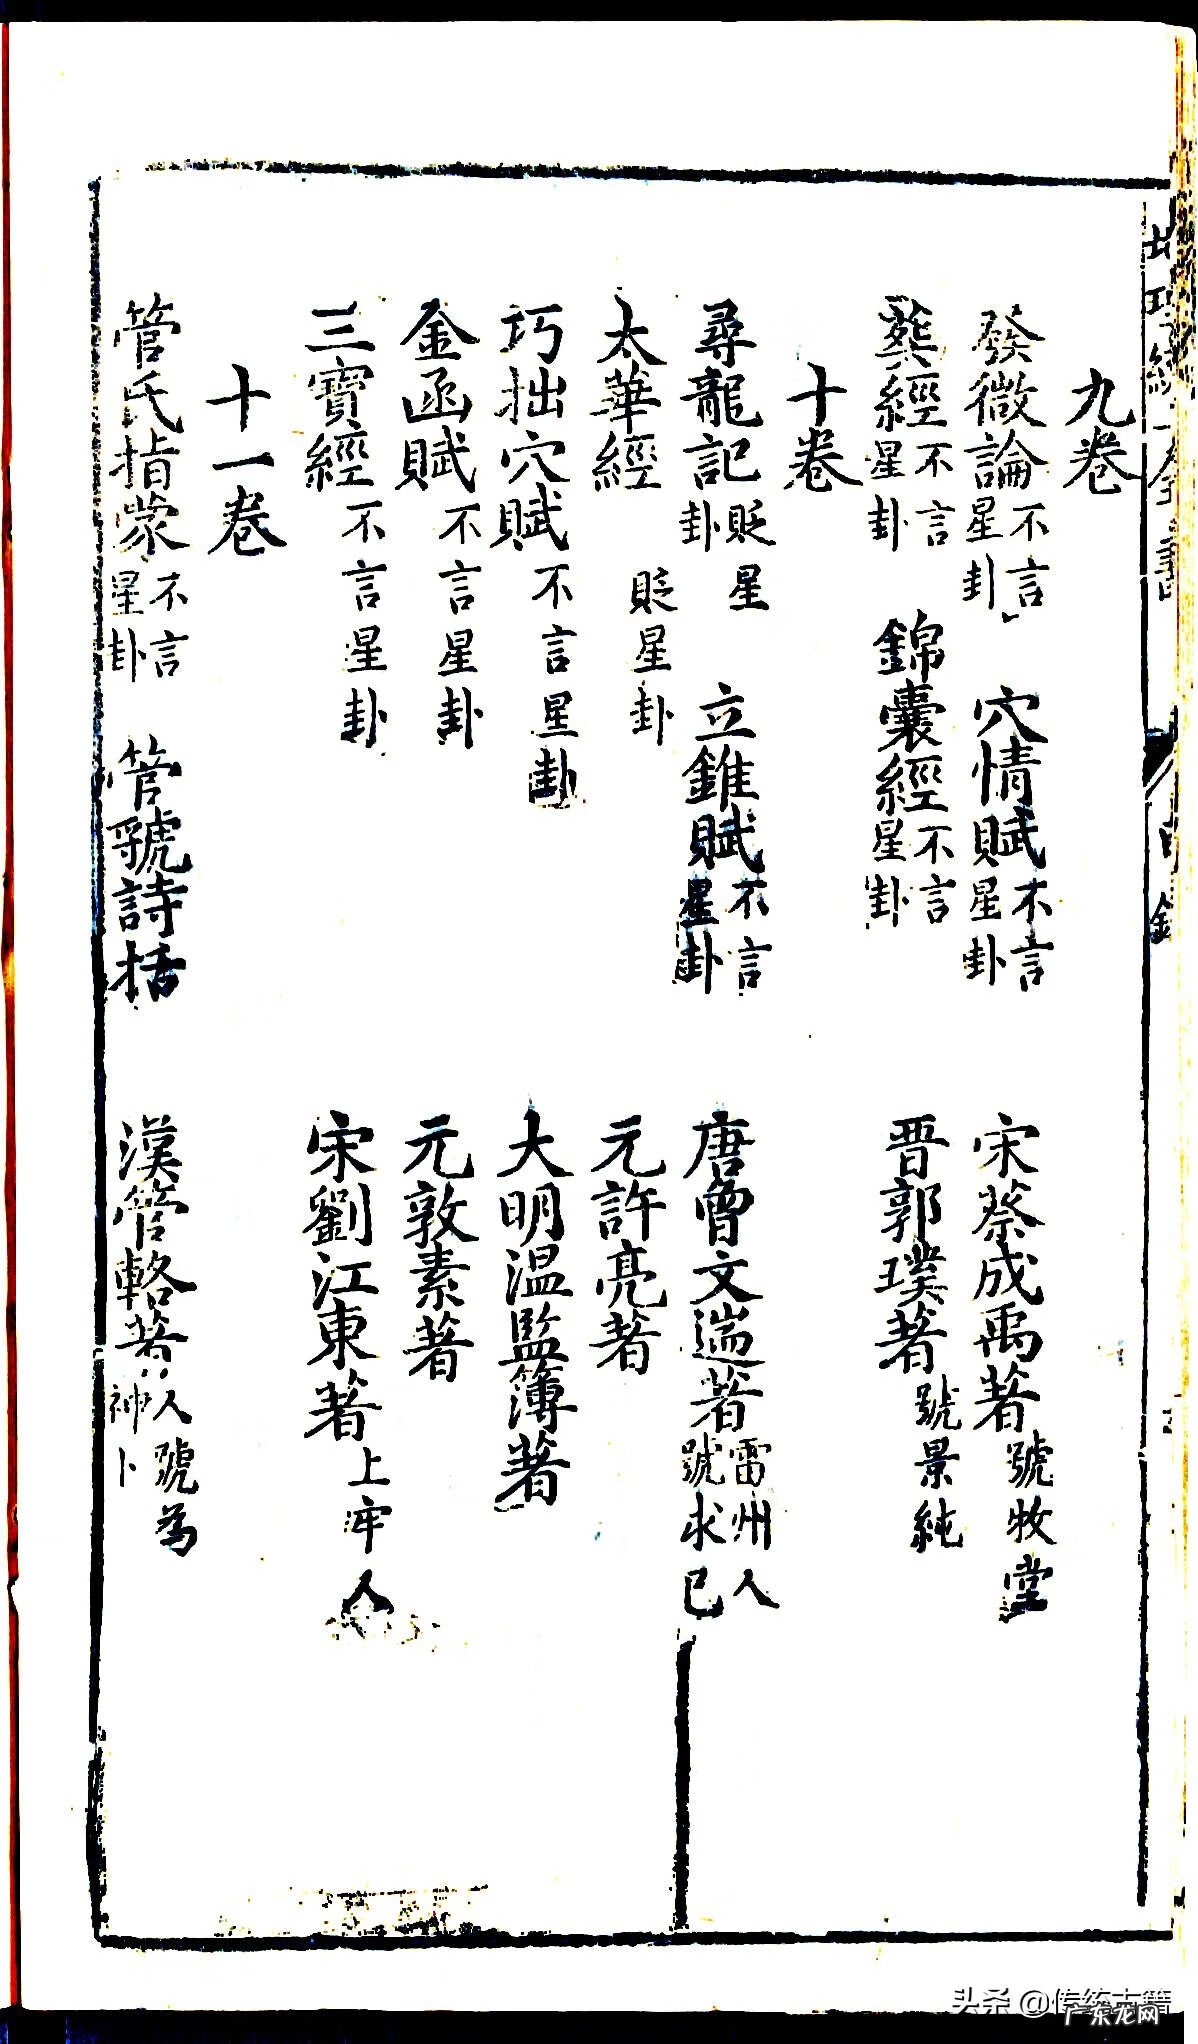 九卷
發微論不言星卦 穴情賦不言星卦 宋蔡成禹著號牧堂
葬經不言星卦 錦囊經不言星卦 晋郭璞著號景純
十卷
尋龍記貶星卦 立錐賦不言星卦 唐曾文遄著雷州人號求已
太華經貶星卦 元許亮著
巧拙穴賦不言星卦 大明温監簿著
金函賦不言星卦 元敦素著
三寳經不言星卦 宋劉江東著上牢人
十一卷
管氏指蒙不言星卦 管虢詩括 漢管輅著人號為神卜
头条 @传统古籍
广东龙网